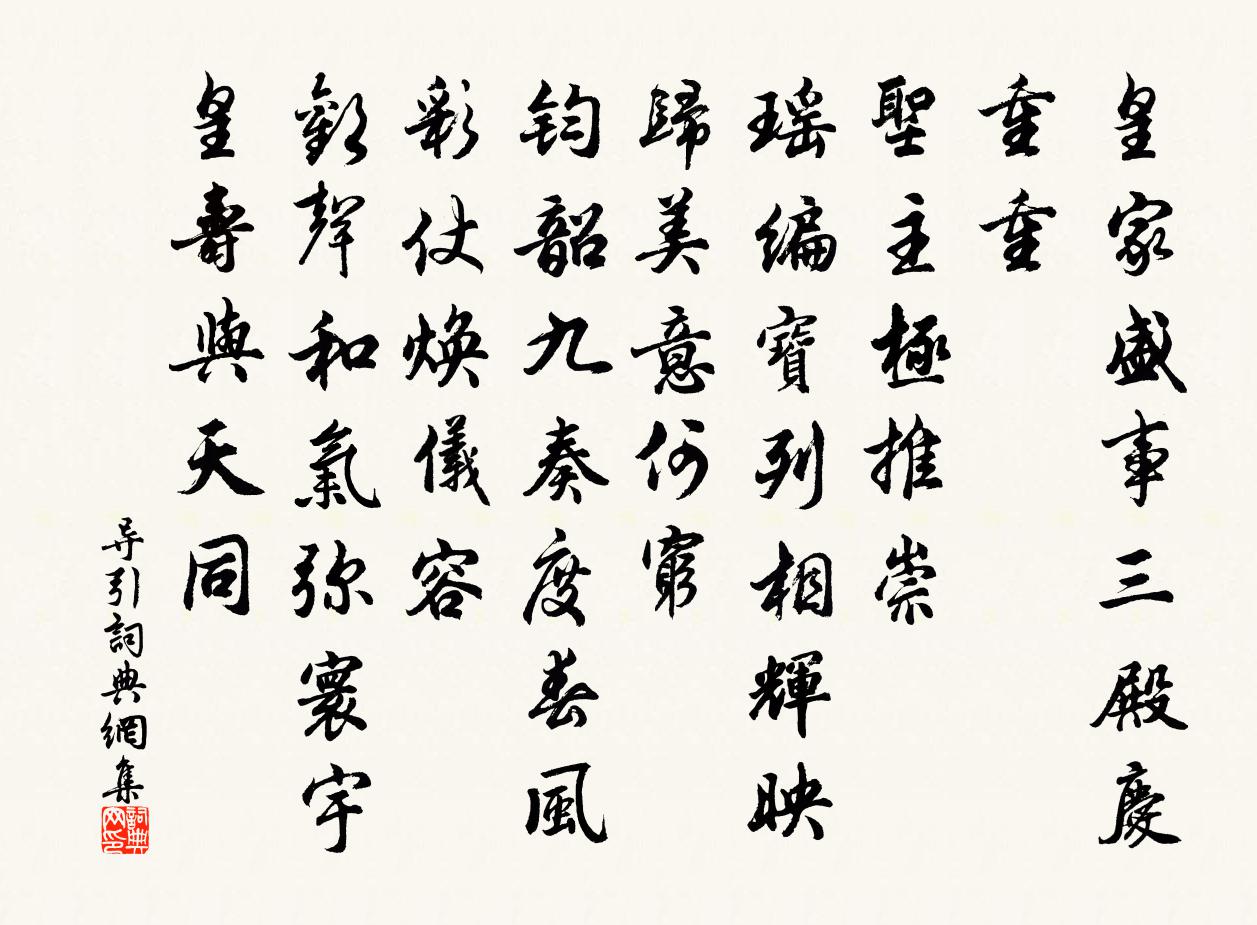 皇家盛事三殿慶
重重
聖主極推崇
瑶编寶列相輝映
歸美意何窮
钧韶九奏度春風
彩仗焕儀容
歡聲和氣弥寰宇
皇壽與天同
导引詞典網集
詞典网印